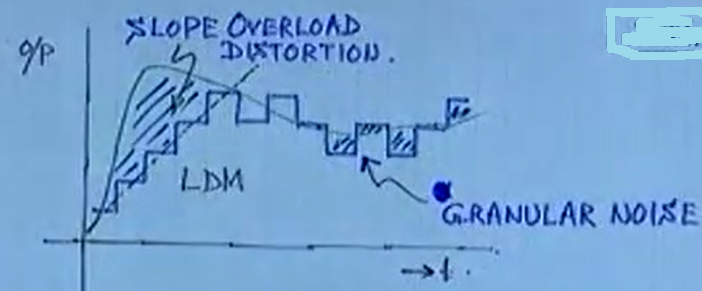 SLOPE OVERLOAD
DISTORTION.
o/p
LDM
GRANULAR NOISE
→t.